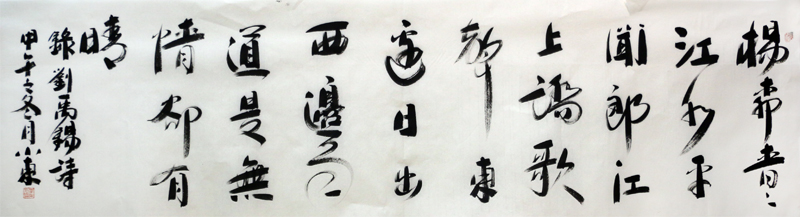 楊柳青〻
江水平
聞郎江
上踏歌
聲東
邊日出
西邊雨
道是無
情卻有
晴
錄劉禹錫詩
甲午之冬月小東